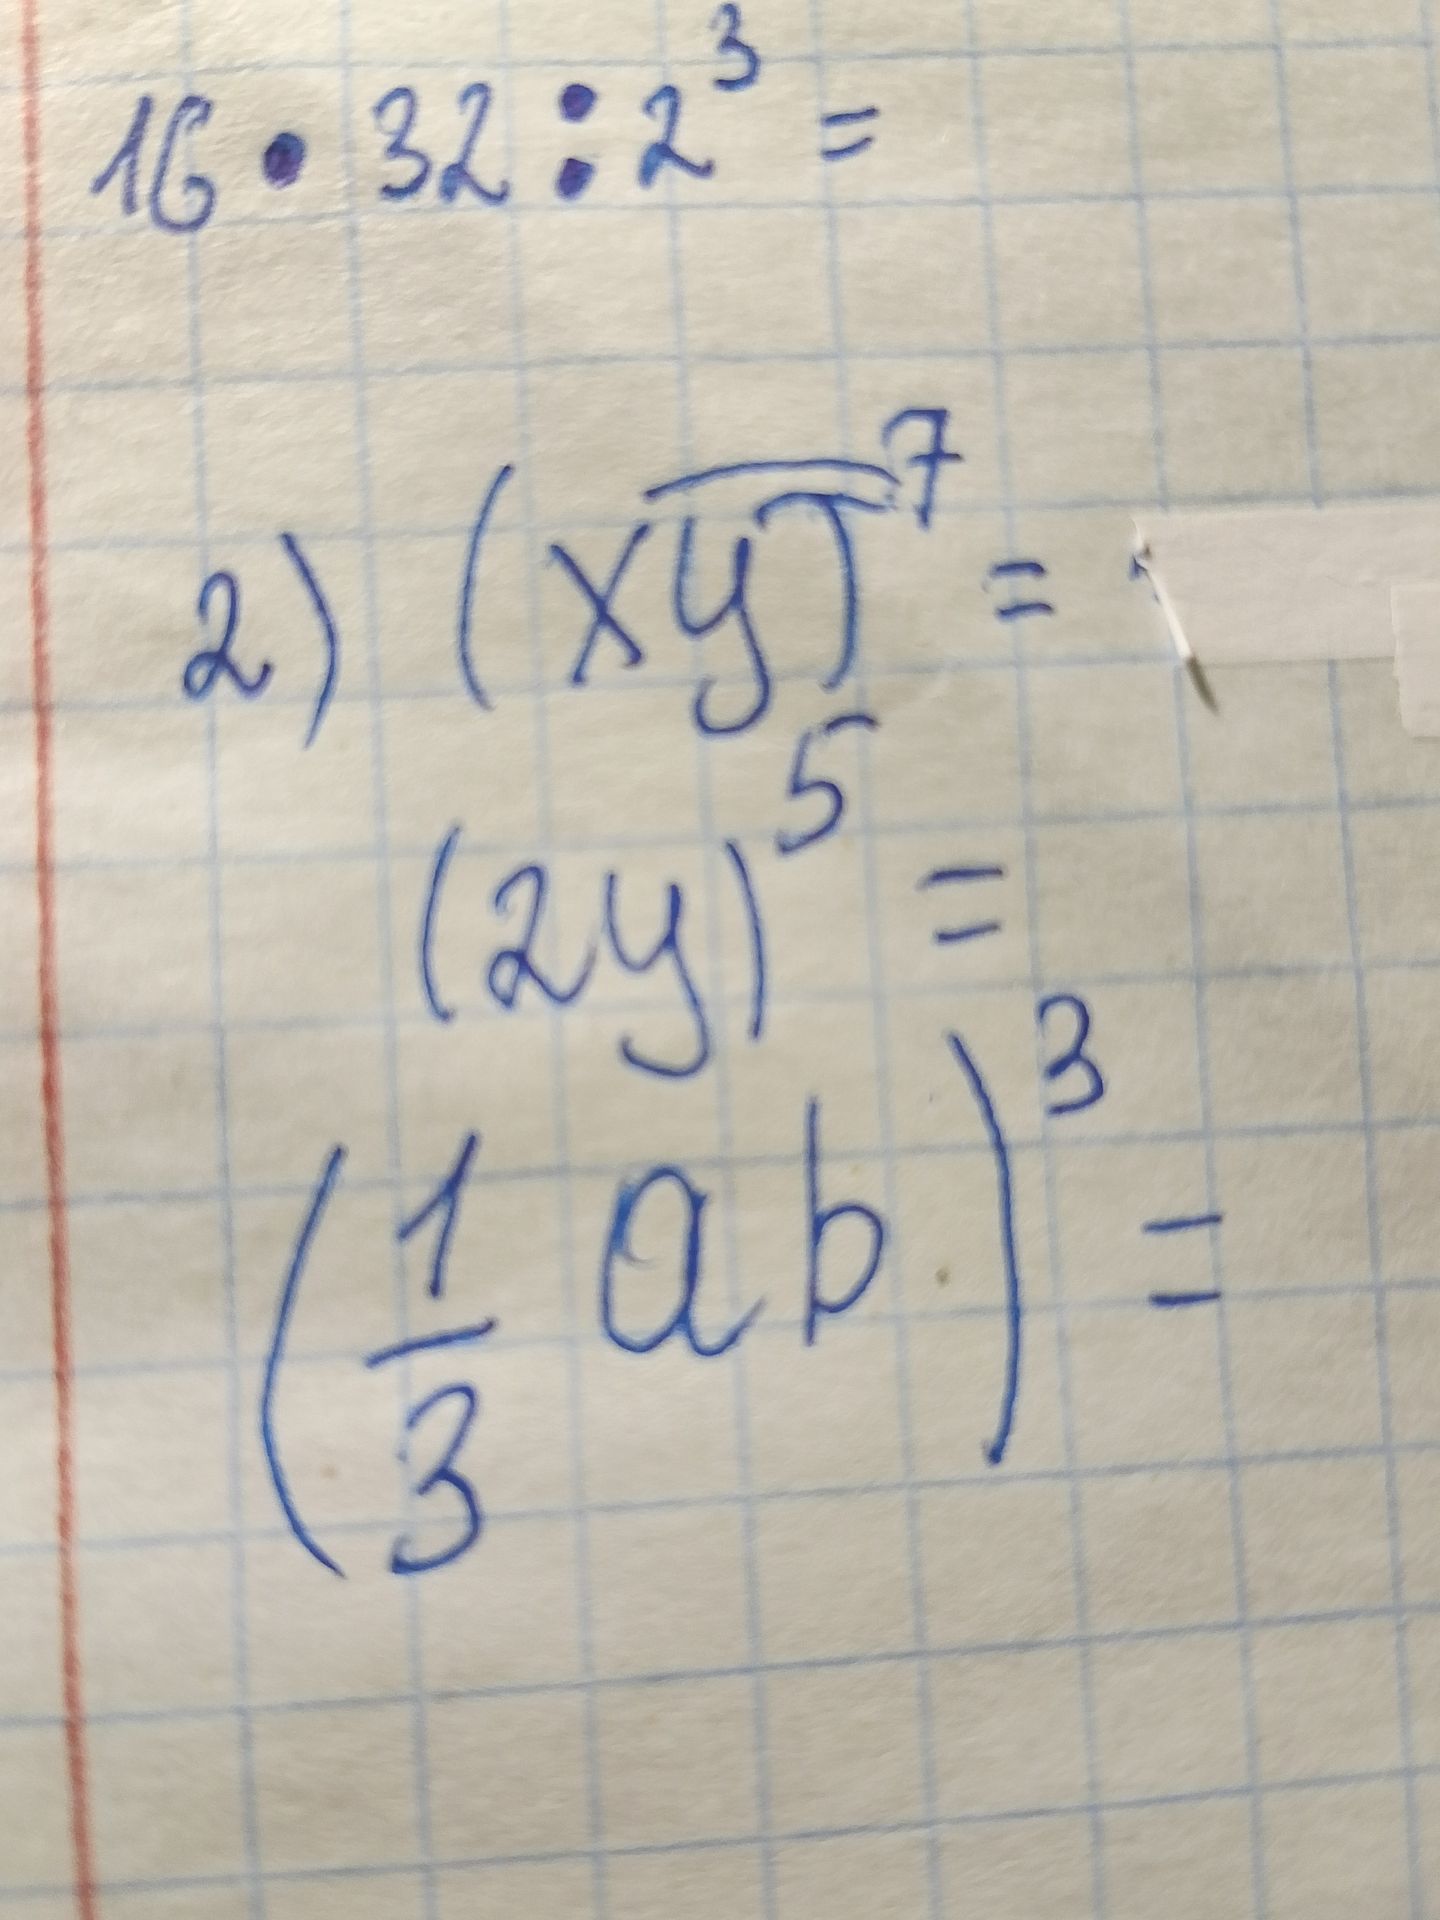 16 • 32 : 2³ =
2) (xy)⁷ =
(2y)⁵ =
(1/3 ab)³ =